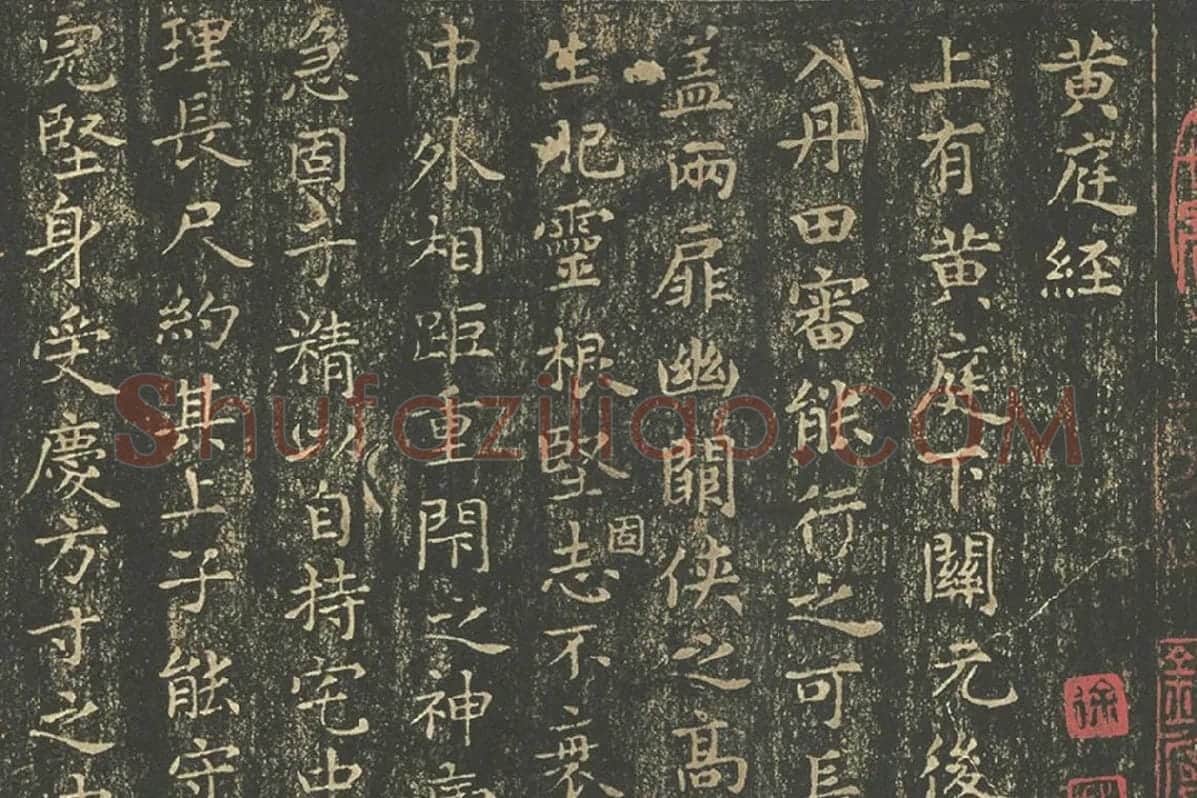 黄庭経
上有黄庭下關元後
入丹田審能行之可長
盖兩扉幽闕俠之高
生肥靈根堅志不衰
固
中外相距重閇之神
急固子精以自持宅中
理長尺約其上子能守
堅身受慶方寸之中
Shufaziliao.COM
徐